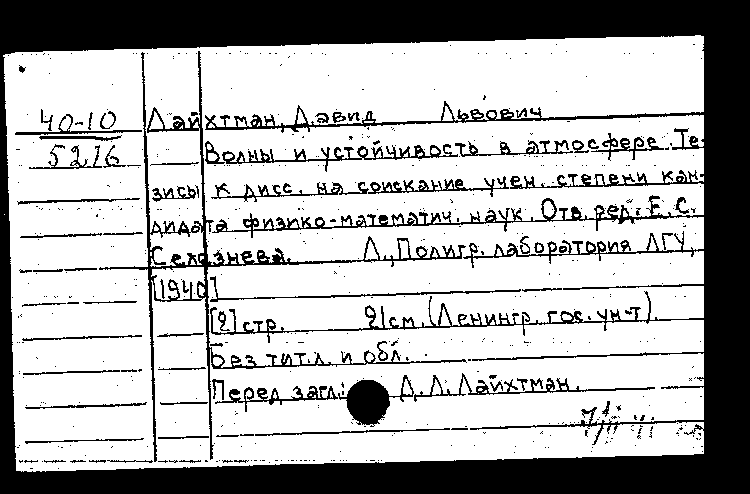 40-10
5276
Лайхтман, Давид Львович
Волны и устойчивость в атмосфере. Те-
зисы к дисс. на соискание учен. степени кан-
дидата физико-математич. наук. Отв. ред.: Е. С.
Селезнева. Л., Полигр. лаборатория ЛГУ,
[1940]
[2] стр. 21см. (Ленингр. гос. ун-т).
Без тит. л. и обл.
Перед загл.: Д. Л. Лайхтман.